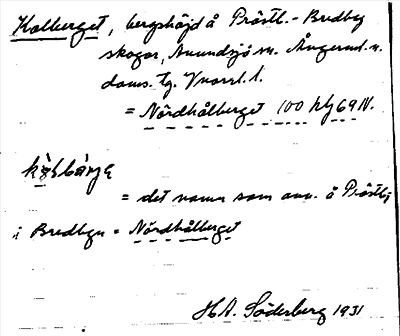 Kalberget, bergshöjd å Prästb.- Bredby
skogar, Anundsjö sn. Ångerml. n.
doms. tg. Vnorrl. l.
= Nördhålberget 100 hlj 69 N.
= det namn som anv. å Prästb.
i Bredbyn = Nördhålberget
H.A. Söderberg 1931